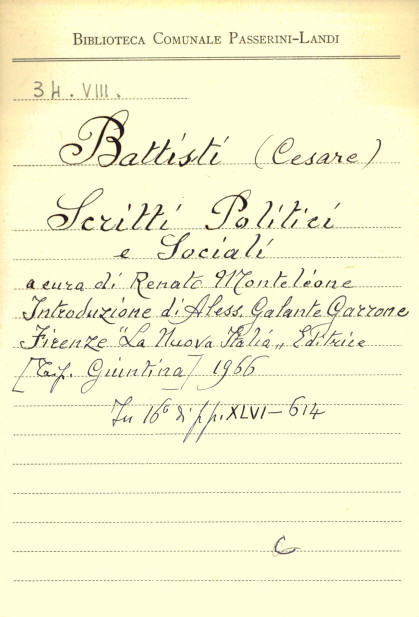 BIBLIOTECA COMUNALE PASSERINI-LANDI
3H.VIII.
Battisti (Cesare)
Scritti Politici
e Sociali
a cura di Renato Monteleone
Introduzione di Aless. Galante Garrone
Firenze "La Nuova Italia„ Editrice
[Tip. Giuntina] 1966
In 16° di pp. XLVI-614
C